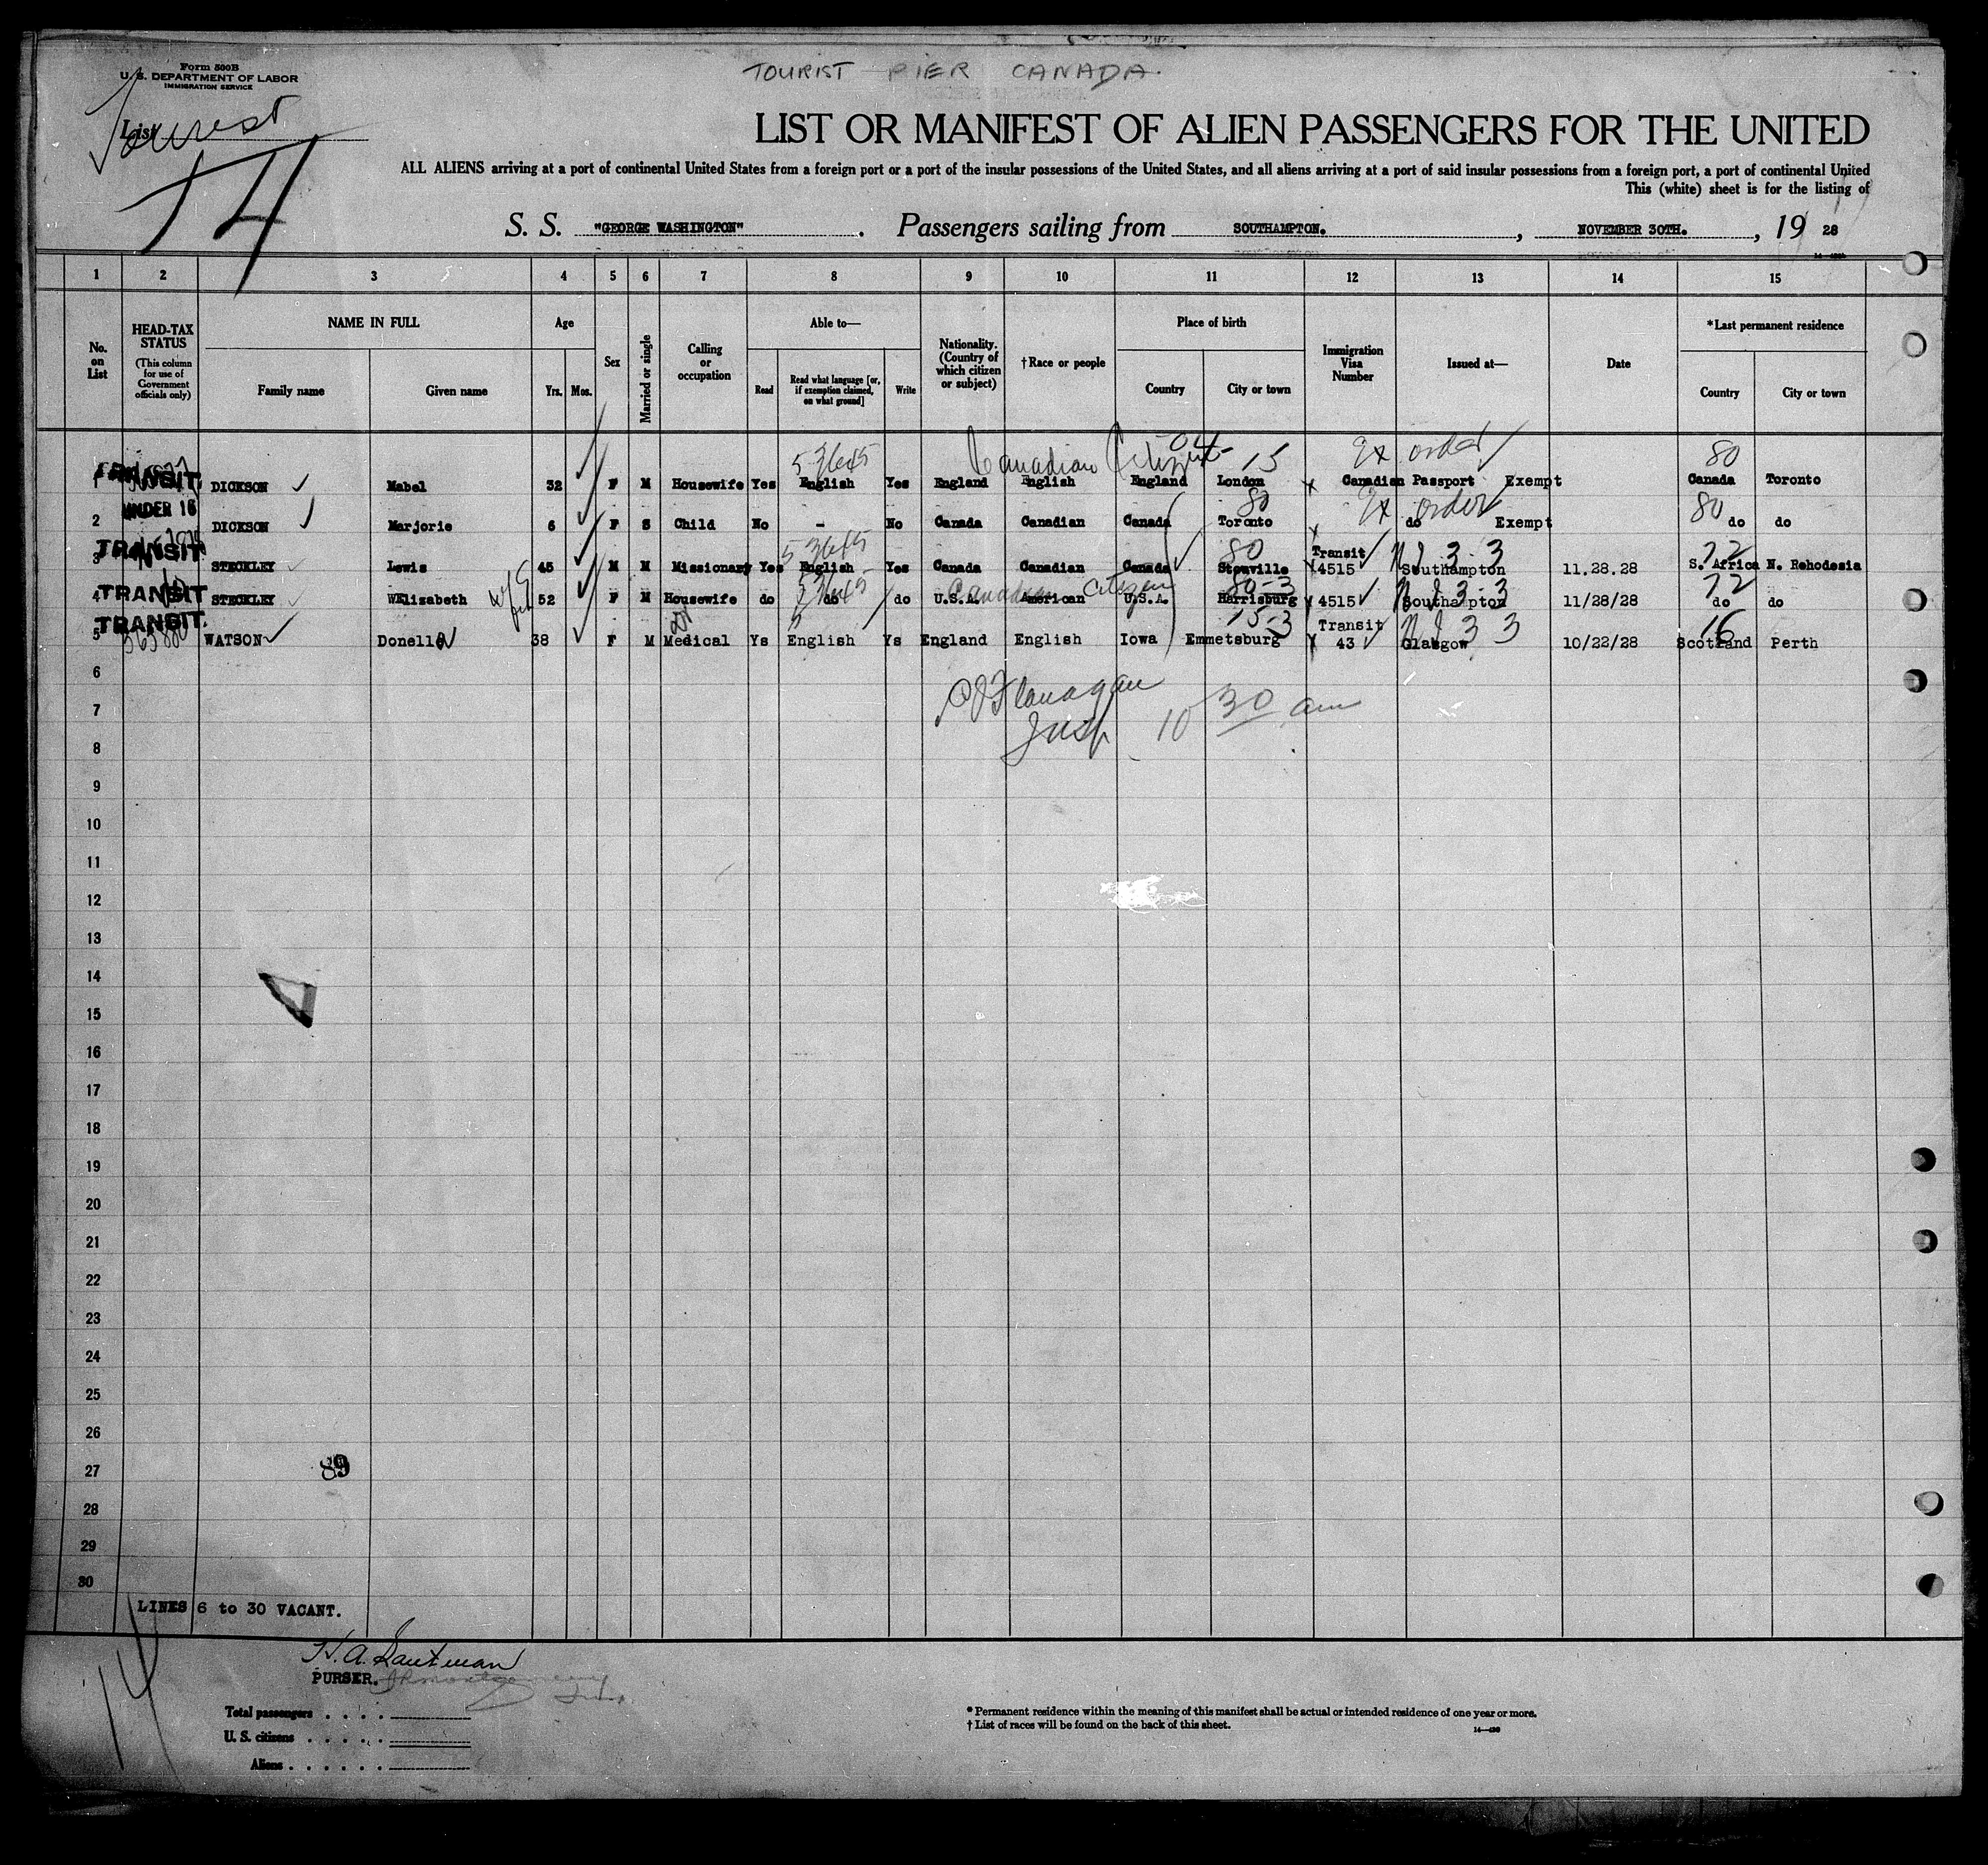 TOURIST PIER CANADA.
Form 500B
U. S. DEPARTMENT OF LABOR
IMMIGRATION SERVICE
Tourist
List
14
LIST OR MANIFEST OF ALIEN PASSENGERS FOR THE UNITED
ALL ALIENS arriving at a port of continental United States from a foreign port or a port of the insular possessions of the United States, and all aliens arriving at a port of said insular possessions from a foreign port, a port of continental United
This (white) sheet is for the listing of
S. S. "GEORGE WASHINGTON". Passengers sailing from SOUTHAMPTON., NOVEMBER 30TH., 19 28
1 2 3 4 5 6 7 8 9 10 11 12 13 14 15
No. on List
HEAD-TAX STATUS
(This column for use of Government officials only)
NAME IN FULL
Family name Given name
Age
Yrs. Mos.
Sex
Married or single
Calling or occupation
Able to—
Read Read what language [or, if exemption claimed, on what ground] Write
Nationality. (Country of which citizen or subject)
†Race or people
Place of birth
Country City or town
Immigration Visa Number
Issued at—
Date
*Last permanent residence
Country City or town
53645 Canadian Citizen 15 Ex order 80
1 TRANSIT DICKSON Mabel 32 F M Housewife Yes English Yes England English England London x Canadian Passport Exempt Canada Toronto
UNDER 16 80 Ex order 80
2 DICKSON Marjorie 6 F S Child No - No Canada Canadian Canada Toronto x do Exempt do do
53645 80 Transit 72
3 TRANSIT STECKLEY Lewis 45 M M Missionary Yes English Yes Canada Canadian Canada Stouville x 4515 Southampton 11.28.28 S. Africa N. Rehodesia
53645 Canadian Citizen 80-3 72
4 TRANSIT STECKLEY Elizabeth wife 52 F M Housewife do do do U.S.A. American U.S.A. Harrisburg x 4515 Southampton 11/28/28 do do
TRANSIT. 15-3 Transit 16
5 WATSON Donella 38 F M Medical Ys English Ys England English Iowa Emmetsburg x 43 Glasgow 10/22/28 Scotland Perth
6
7
8
CJ Flanagan
Insp 10 30 am
9
10
11
12
13
14
15
16
17
18
19
20
21
22
23
24
25
26
27
89
28
29
30
LINES 6 to 30 VACANT.
14
PURSER.
Total passengers . . . .
U. S. citizens . . . . .
Aliens . . . . . .
* Permanent residence within the meaning of this manifest shall be actual or intended residence of one year or more.
† List of races will be found on the back of this sheet.